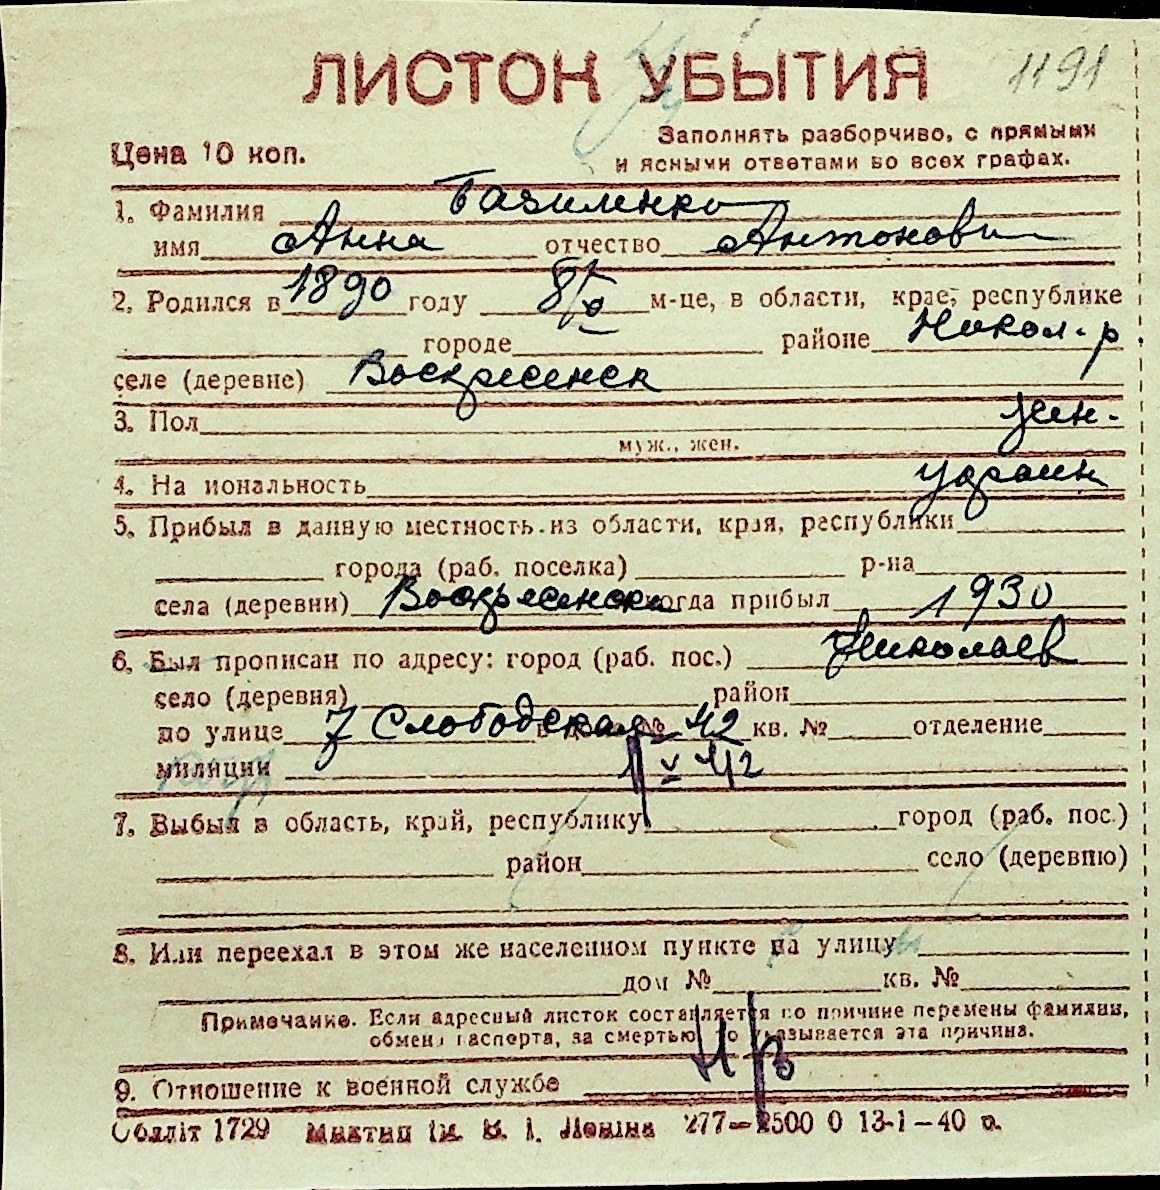 1191
ЛИСТОК УБЫТИЯ
Цена 10 коп.
Заполнять разборчиво, с прямыми
и ясными ответами во всех графах.
1. Фамилия Базиленко
имя Анна отчество Антонови
2. Родился в 1890 году 8/X м-це, в области, крае, республике
городе районе Никол. р.
селе (деревне) Воскресенск
3. Пол жен.
муж., жен.
4. На иональность украин
5. Прибыл в данную местность из области, края, республики
города (раб. поселка) р-на
села (деревни) Воскресенска когда прибыл 1930
6. Был прописан по адресу: город (раб. пос.) Николаев
село (деревня) район
по улице 7 Слободская № 42 кв. № отделение
милиции 1 V 42
7. Выбыл в область, край, республику город (раб. пос.)
район село (деревню)
8. Или переехал в этом же населенном пункте на улицу
дом № кв. №
Примечание. Если адресный листок составляется по причине перемены фамилии,
обмена паспорта, за смертью, то указывается эта причина.
9. Отношение к военной службе
Облліт 1729 ім. В. І. Леніна 277—2500 0 13-1-40 р.